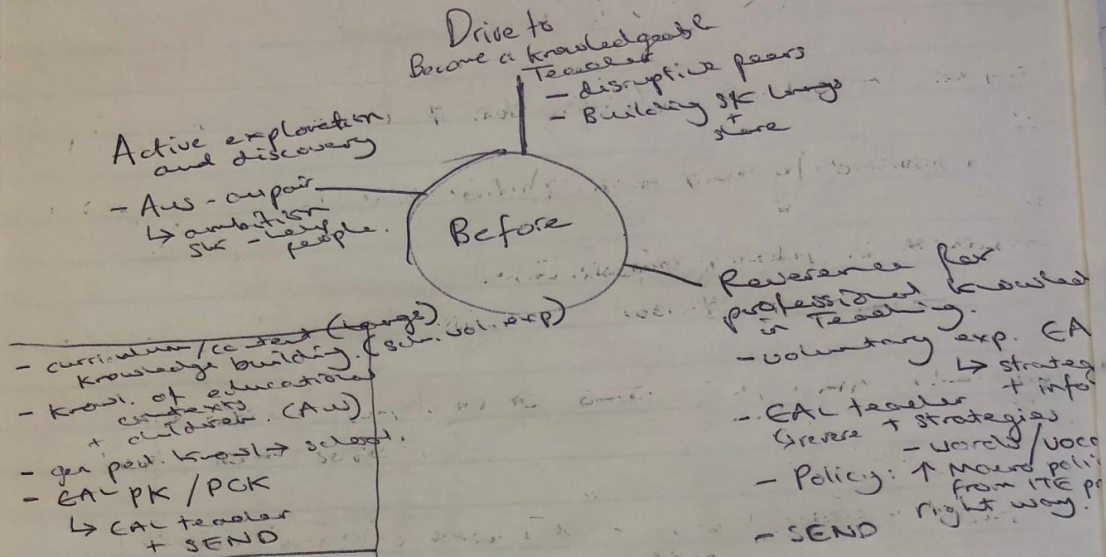 Drive to
Become a knowledgeable
Teacher
- disruptive peers
- Building SK langs
+
share
Active exploration
and discovery
- Aus - aupair
↳ ambition
SK - help
people.
Before
Reverence for
professional knowled
in Teaching.
- voluntary exp. EA
↳ strateg
+ info
- EAL teacher
↳ revere + strategies
- words/voca
- Policy: ↑ Macro poli
from ITE p
right way.
- SEND
- curriculum/content (langs)
knowledge building. (sch. vol. exp)
- knowl. of educational
contexts
+ children. (Aus)
- gen ped. knowl → school.
- EAL PK / PCK
↳ EAL teacher
+ SEND